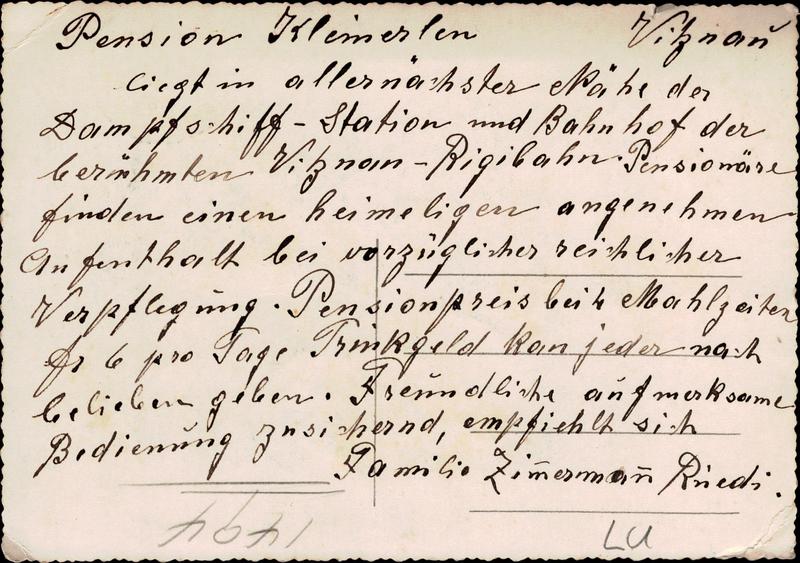 Pension Kleinerlen Vitznau
liegt in allernächster Nähe der
Dampfschiff-Station und Bahnhof der
berühmten Vitznau-Rigibahn. Pensionäre
finden einen heimeligen angenehmen
Aufenthalt bei vorzüglicher reichlicher
Verpflegung. Pensionpreis bei 4 Mahlzeiten
Fr 6 pro Tage Trinkgeld kan jeder nach
belieben geben. Freundliche aufmerksame
Bedienung zusichernd, empfiehlt sich
Familie Zim̄erman̄ Rüedi.
1494
LU